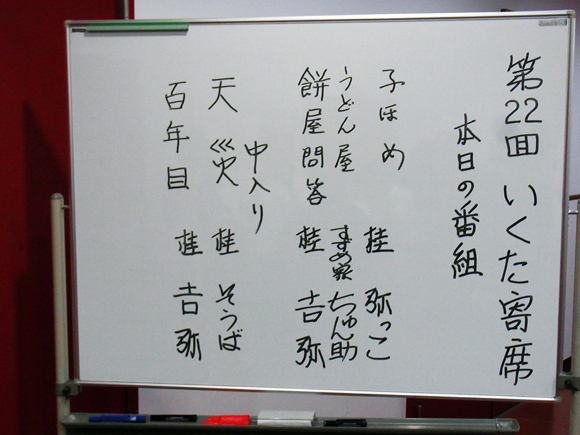 第22回 いくた寄席
本日の番組
子ほめ 桂 弥っこ
うどん屋 すずめ家 ちゅん助
餅屋問答 桂 吉弥
中入り
天災 桂 そうば
百年目 桂 吉弥